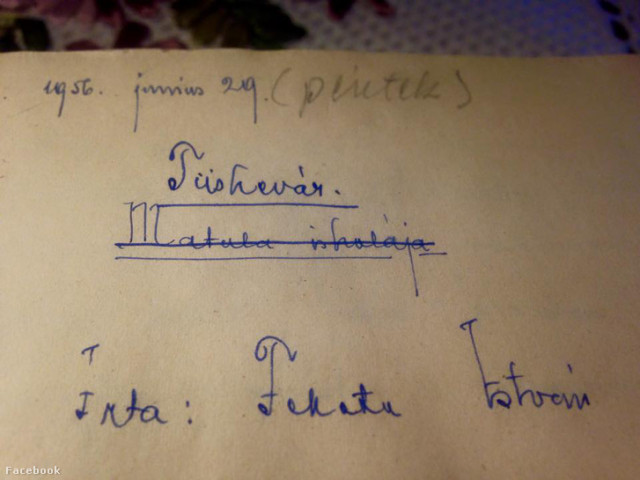 1956. junius 29. (péntek)
Tüskevár.
Matula iskolája
Írta: Fekete István
Facebook